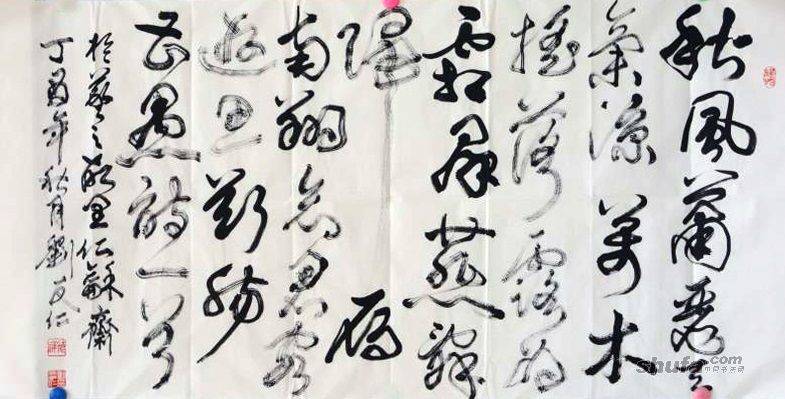 秋風蕭瑟天
氣涼木
搖落露為
霜群燕辭
歸雁
南翔念君客
遊思斷腸
詩一首
於之里仁龢齋
丁酉年秋月劉文仁
shufa.com